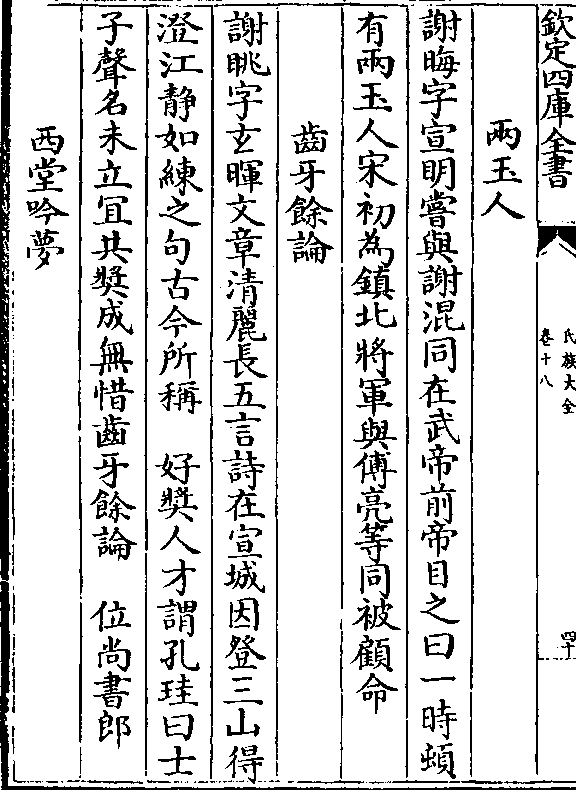 欽定四庫全書
氏族大全
卷十八
四十
兩玉人
謝晦字宣明嘗與謝混同在武帝前帝目之曰一時頓
有兩玉人宋初為鎮北將軍與傅亮等同被顧命
齒牙餘論
謝眺字玄暉文章清麗長五言詩在宣城因登三山得
澄江静如練之句古今所稱　好奬人才謂孔珪曰士
子聲名未立冝共奬成無惜齒牙餘論　位尚書郎
西堂吟夢